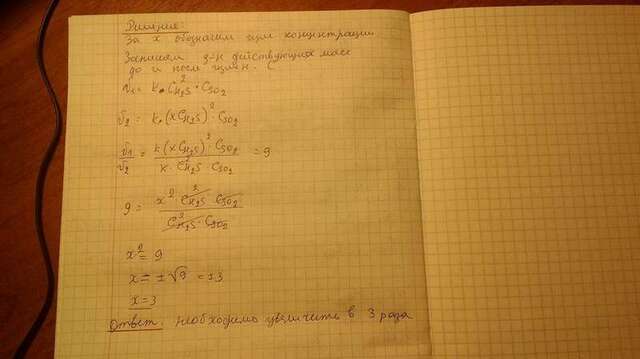 Решение:
За x обозначим изм концентрации
Запишем з-н действующих масс
до и после изм. C
v₁ = k · C²H₂S · CSO₂
v₂ = k · (xCH₂S)² · CSO₂
v₁/v₂ = k(xCH₂S)² · CSO₂ / k · C²H₂S · CSO₂ = 9
9 = x² · C²H₂S · CSO₂ / C²H₂S · CSO₂
x² = 9
x = ±√9 = ±3
x = 3
Ответ. необходимо увеличить в 3 раза